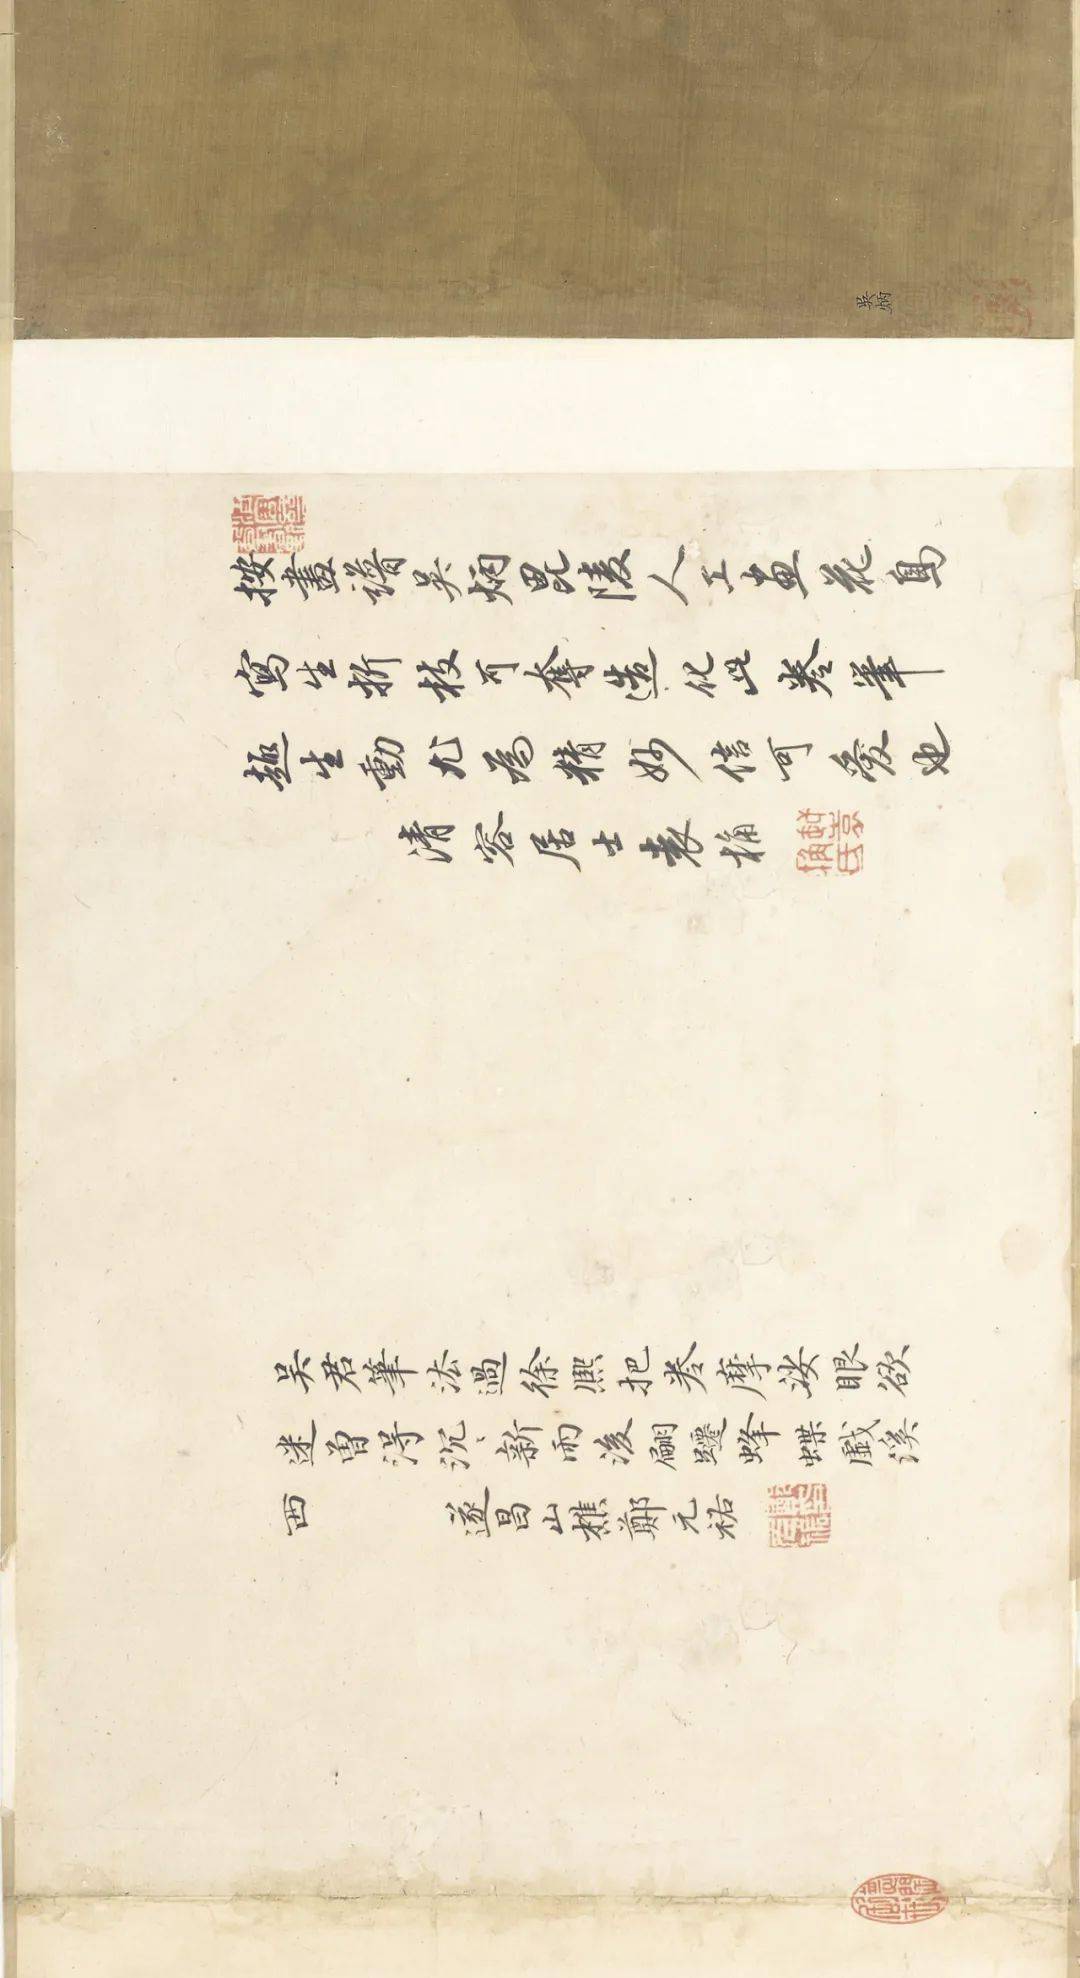 吳炳
按畫譜吳炳毘陵人工畫花鳥
寫生折枝可奪造化此卷筆
趣生動尤為精妙信可愛也
清容居士袁桷
吳君筆法過徐熙把卷摩挲眼欲
迷曾得沉沉新雨後翩躚蜂蝶戲溪
西
遂昌山樵鄭元祐